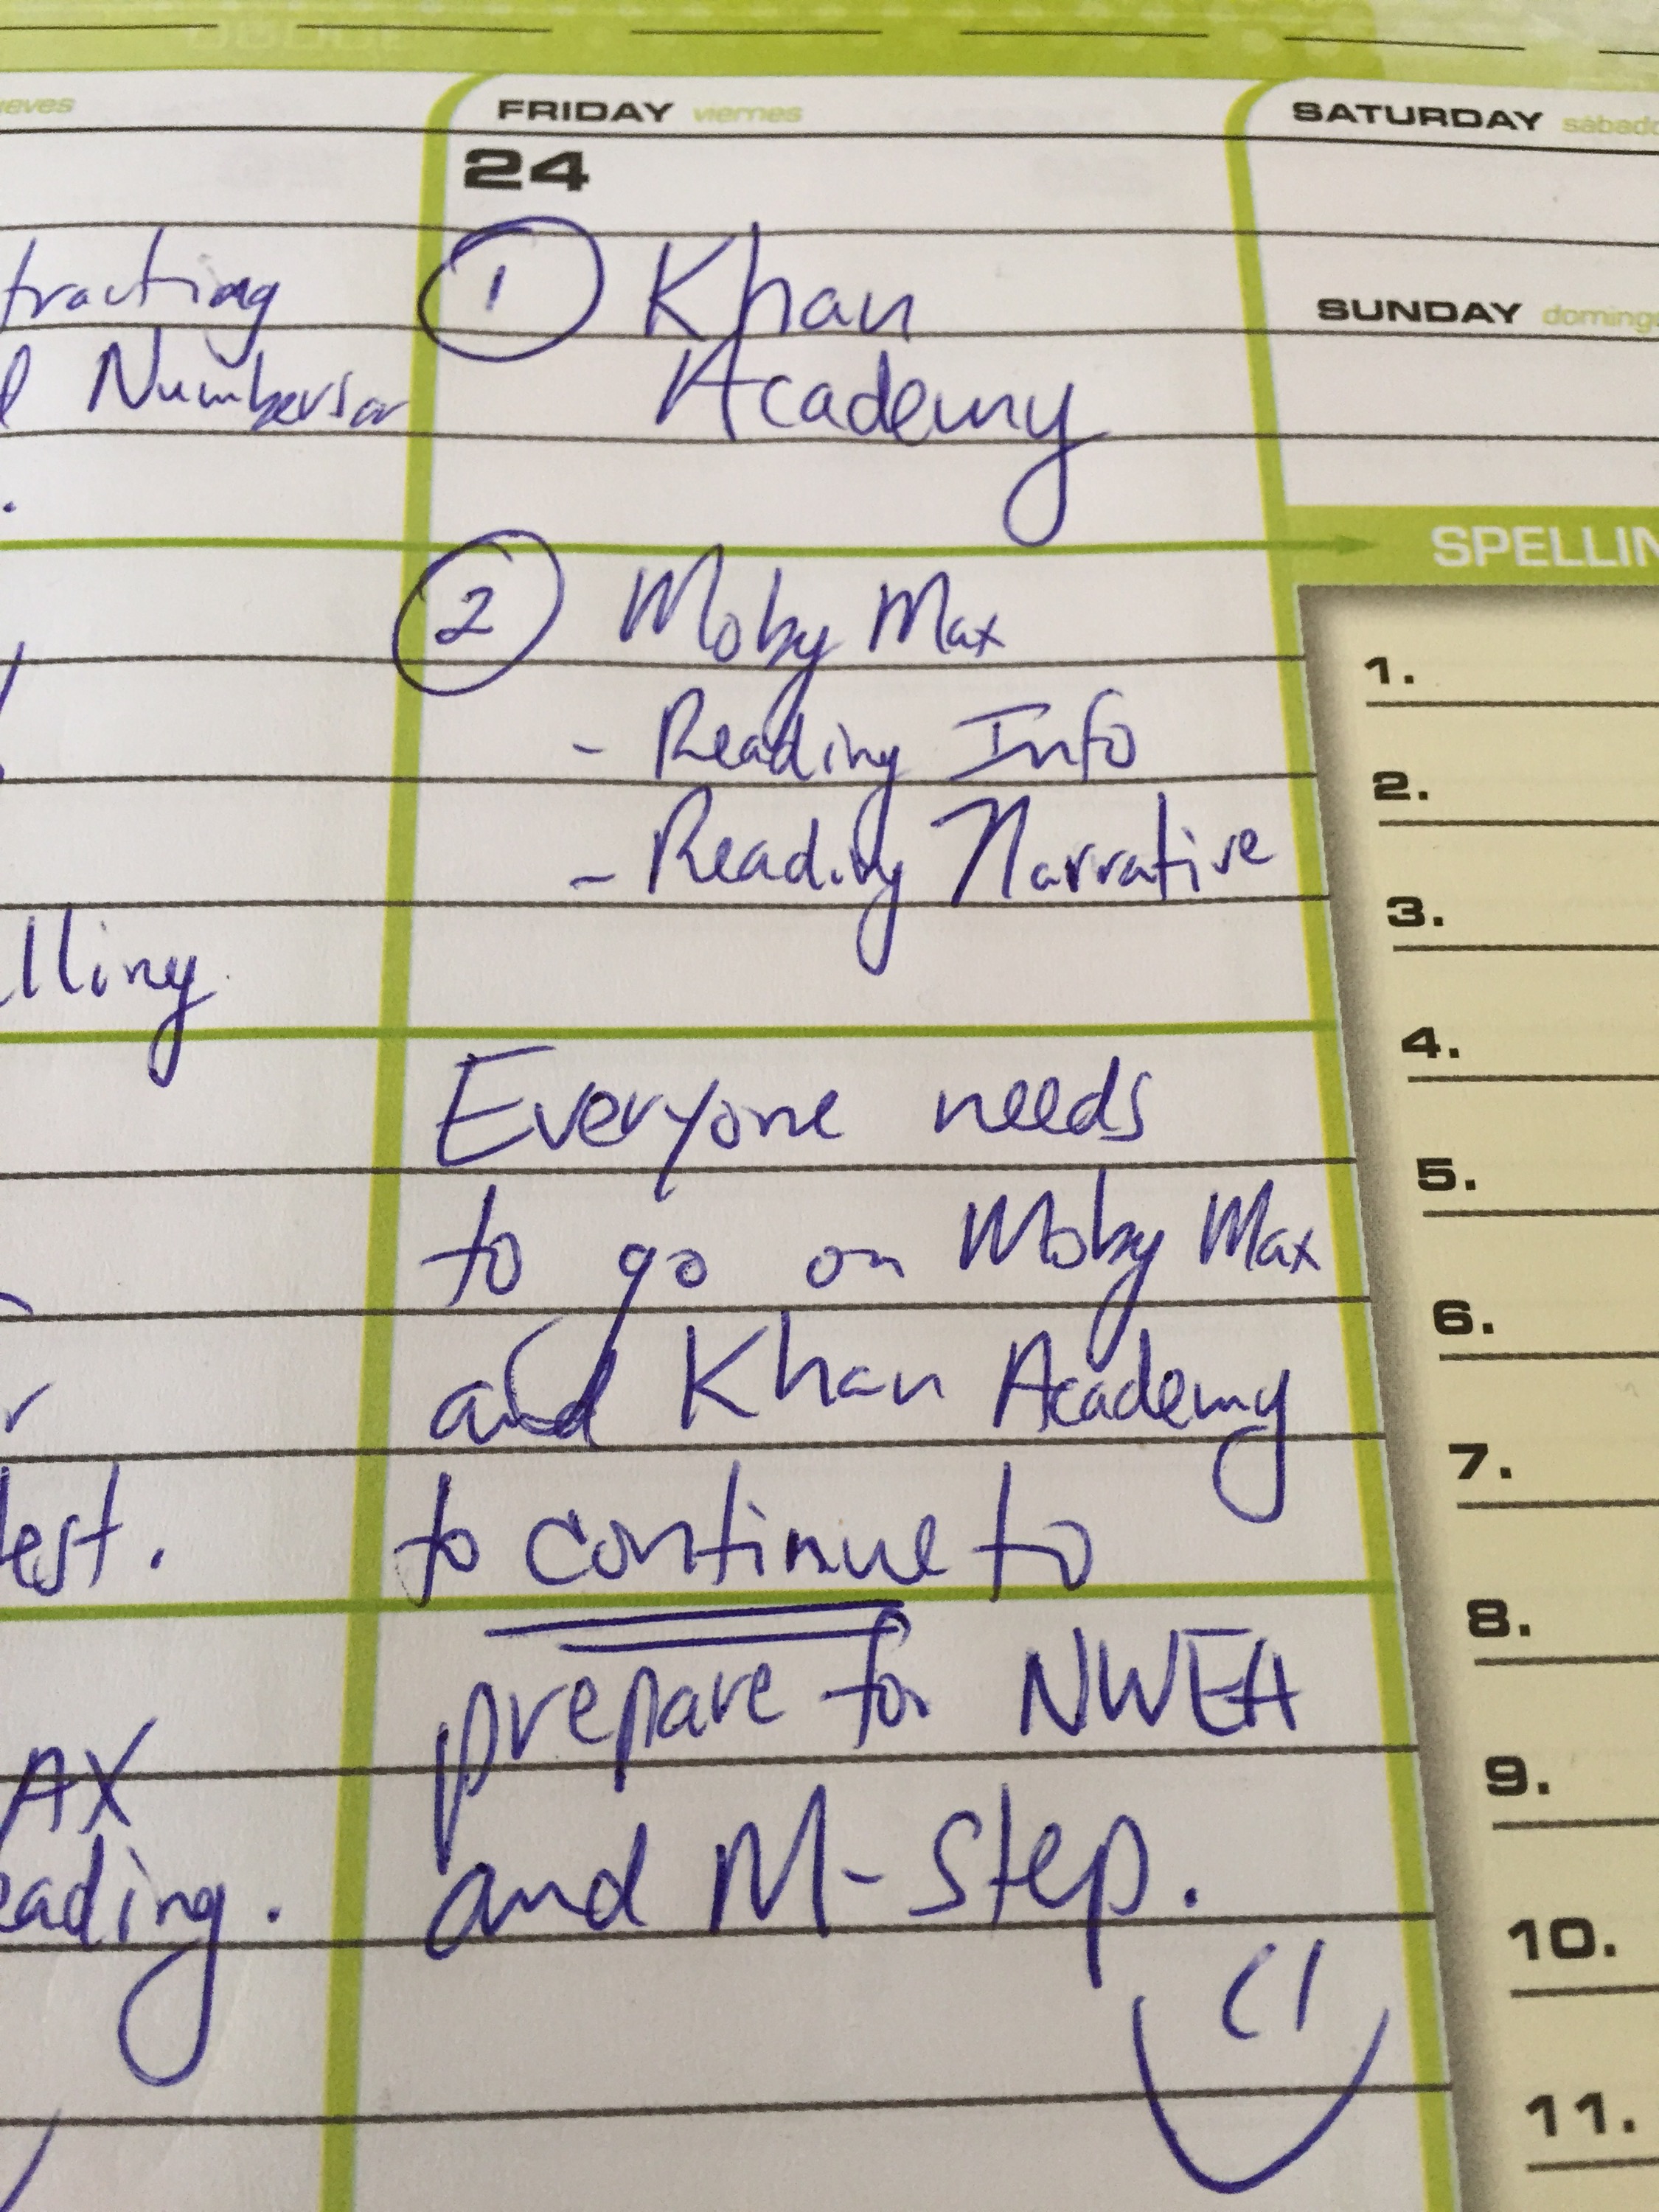 ueves
tracting
Numbers
.
lling
r
Test.
AX
eading.
FRIDAY viernes
24
1 Khan
Academy
2 Moby Max
- Reading Info
- Reading Narrative
Everyone needs
to go on Moby Max
and Khan Academy
to continue to
prepare for NWEA
and M-Step.
SATURDAY sábado
SUNDAY doming
SPELLIN
1.
2.
3.
4.
5.
6.
7.
8.
9.
10.
11.